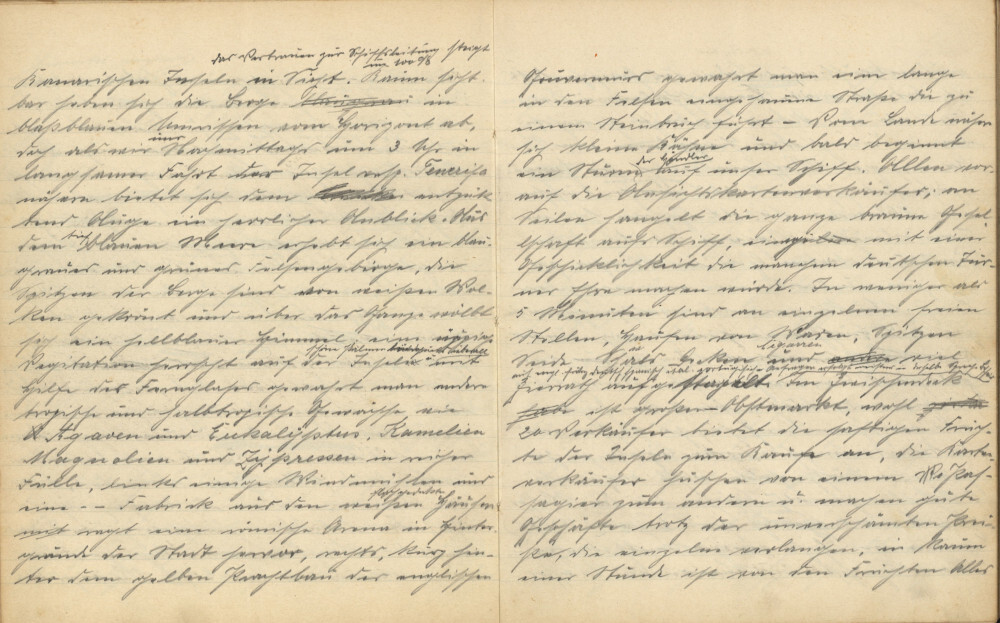 das Vertrauen zur Schiffsleitung steigt
um 100 %
Kanarischen Inseln in Sicht. Kaum sicht-
bar heben sich die Berge in
blaßblauen Umrissen vom Horizont ab,
doch als wir uns Nachmittags um 3 Uhr in
langsamer Fahrt der Insel resp. Teneriffa
nähern bietet sich dem entzück-
tend Auge ein herrlicher Anblick. Aus
dem tief blauen Meere erhebt sich ein blau-
graues und grünes Felsengebirge, die
Spitzen der Berge sind von weißen Wol-
ken gekrönt und über das Ganze wölbt
sich ein hellblauer Himmel, eine üppige
Vegitation herrscht auf der Insel mit
Hilfe des Fernglases gewahrt man andere
tropische und halbtropische Gewächse, wie
Agaven und Eukalyptus, Kamelien
Magnolien und Zypressen in reicher
Fülle, links einige Windmühlen und
eine -- Fabrick aus den weißen Häusern
mit ragt eine römische Arena im Hinter-
grunde der Stadt hervor, rechts, kurz hin-
ter dem gelben Prachtbau des englischen
Gouverneurs gewahrt man eine lange
in den Felsen eingehauene Straße die zu
einem Steinbruch führt – Vom Lande nähern
sich kleine Kähne und bald beginnt
ein Sturm der Händler auf unser Schiff. Allen vor-
auf die Ansichtskartenverkäufer; an
Seilen hangelt die ganze braune Gesel-
lschaft aufs Schiff, mit einer
Geschicklichkeit die manchem deutschen Tur-
ner Ehre machen würde. In weniger als
5 Minuten sind an einzelnen freien
Stellen, Haufen von Waren, Spitzen
Seide – Schals Decken Zigarren und viel
Zierrath aufgestapelt. Im Zwischendeck
ist großer Obstmarkt, wohl
20 Verkäufer bietet die saftigen Früch-
te der Inseln zum Kaufe an, die Karten-
verkäufer huschen von einem Pas-
sagier zum andern u. machen gute
Geschäfte trotz der unverschämten Prei-
se, die einzelne verlangen, in kaum
einer Stunde ist von den Früchten Alles